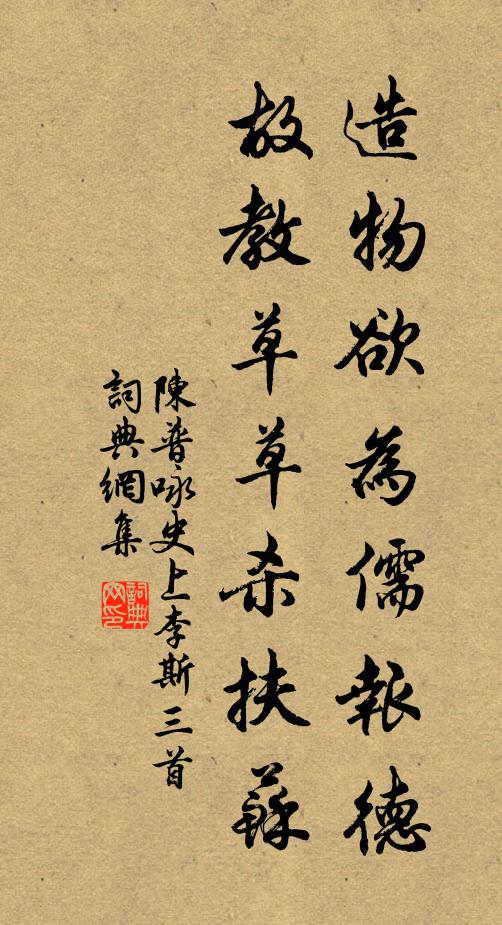 造物欲為儒報德
故教草草杀扶蘇
陳普咏史上李斯三首
詞典網集
詞典网印